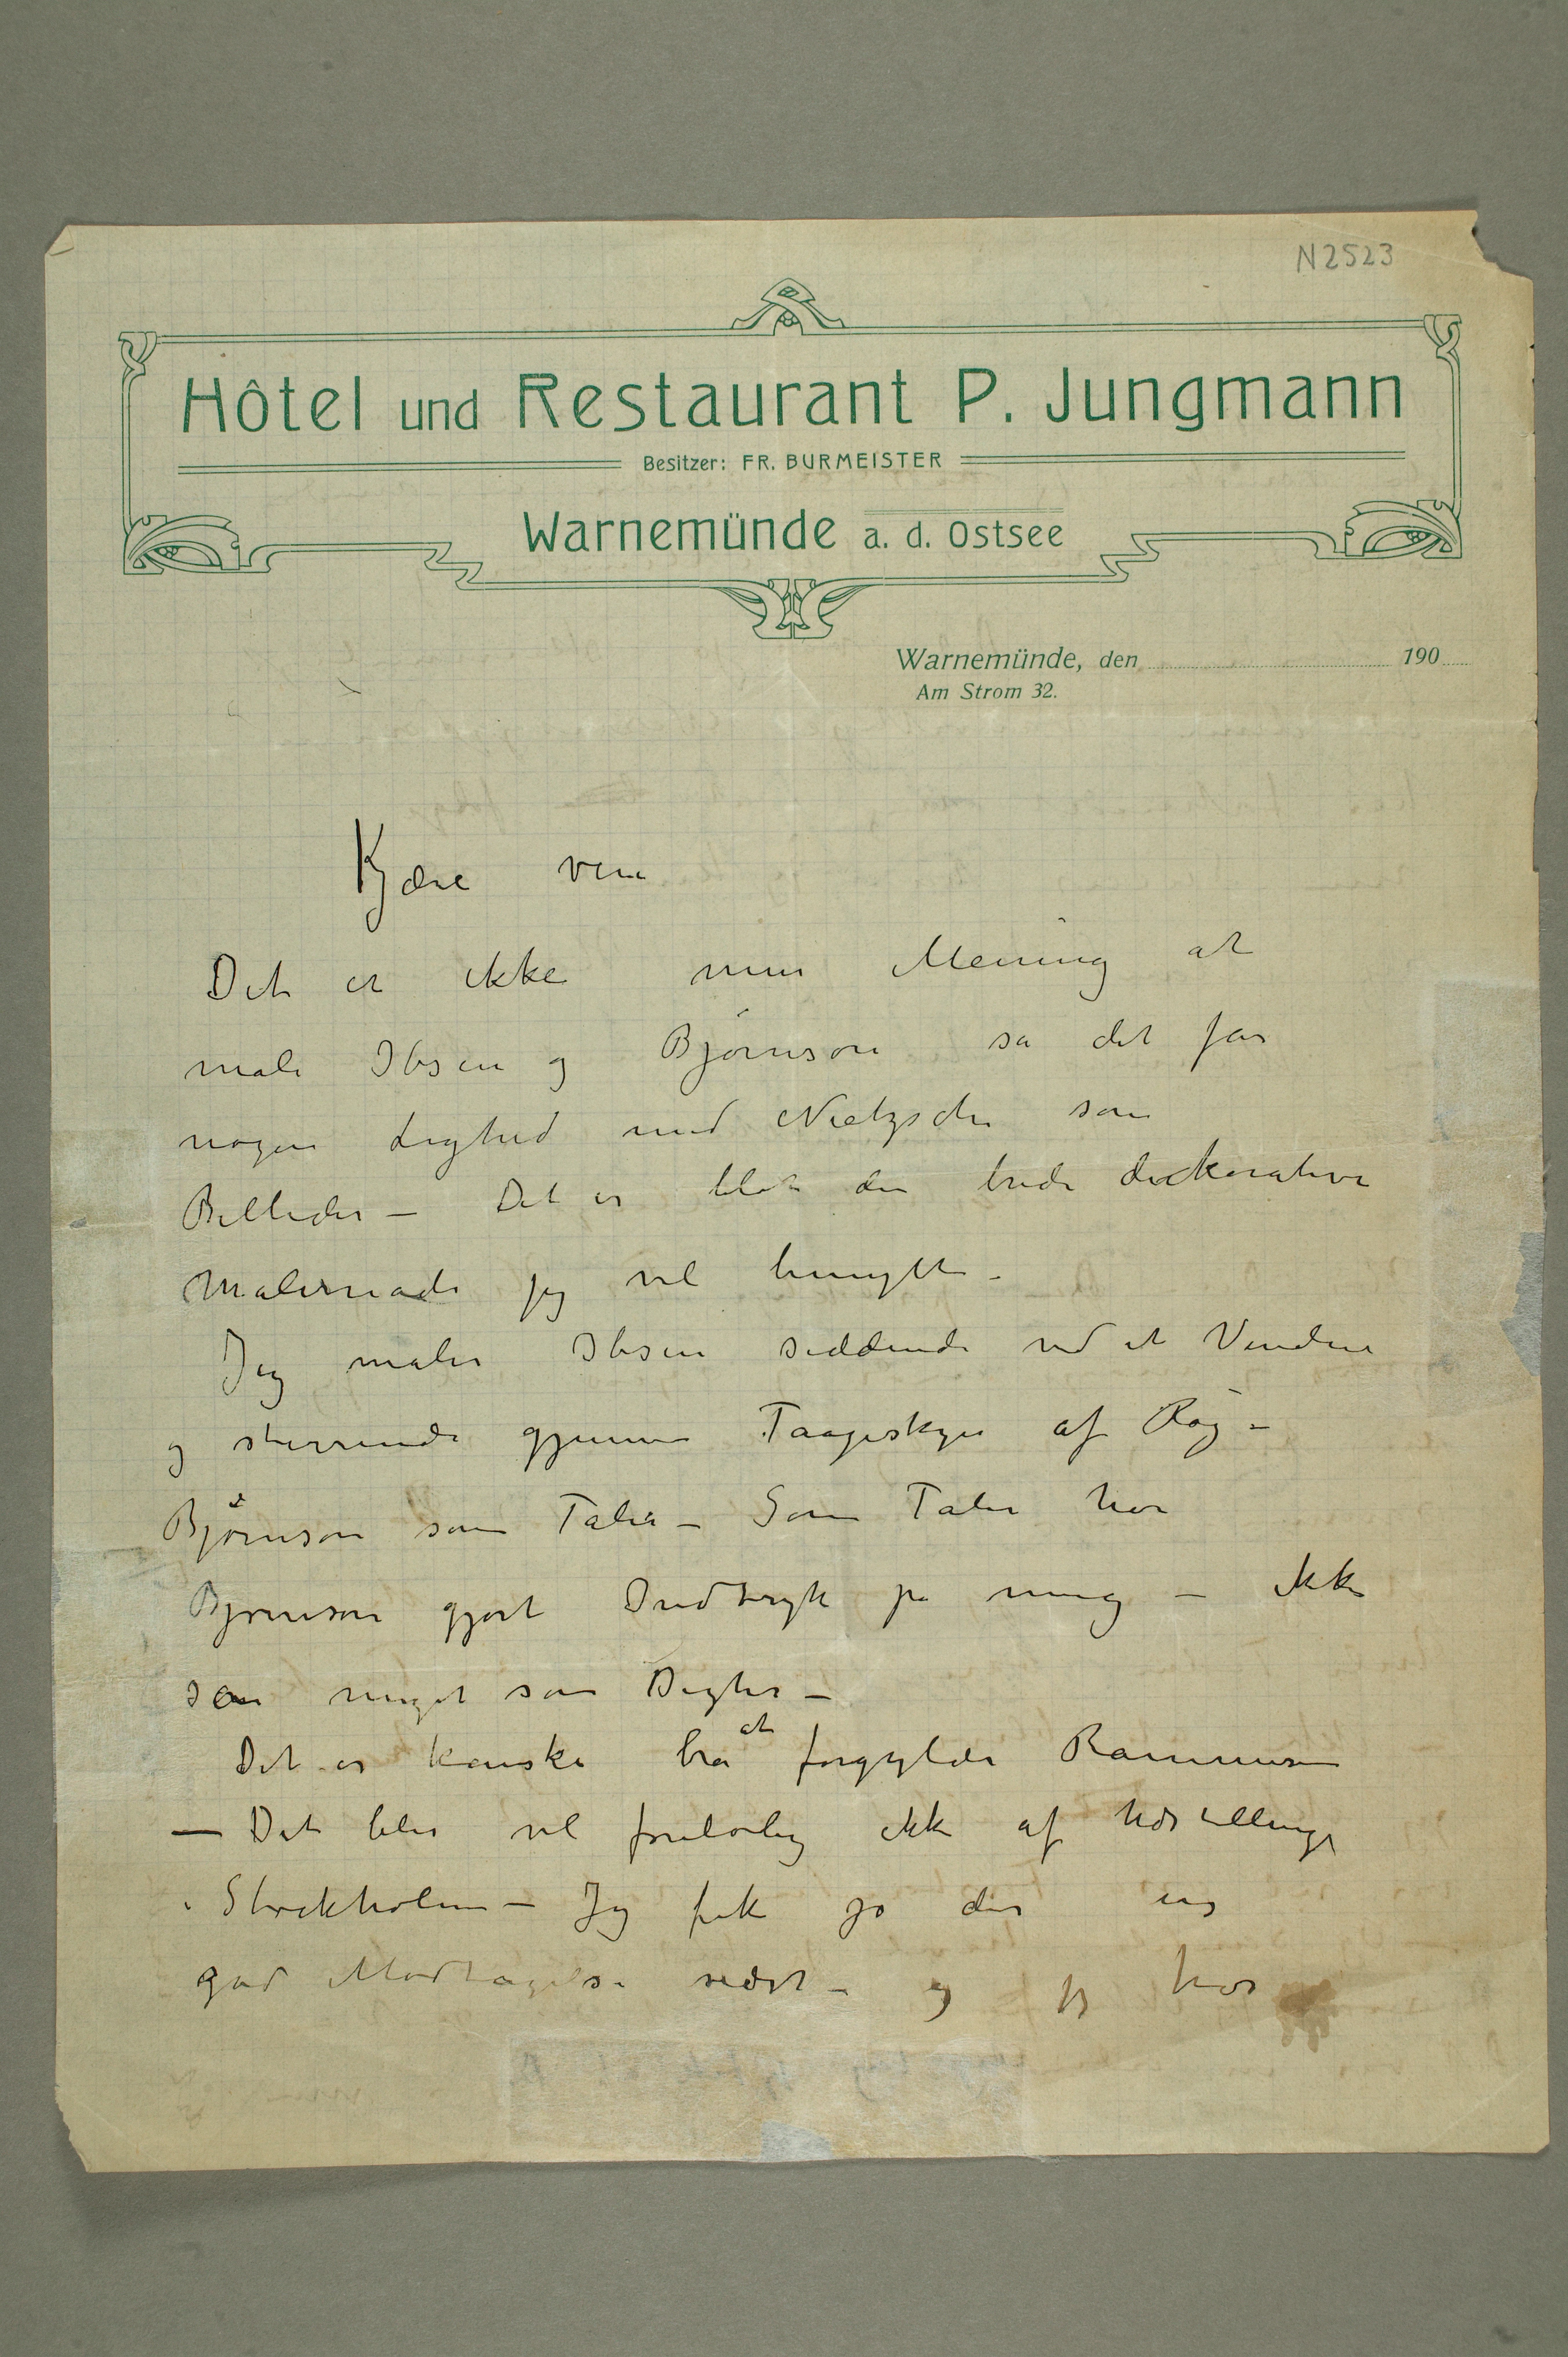 N 2523
Hôtel und Restaurant P. Jungmann
Besitzer: FR. BURMEISTER
Warnemünde a. d. Ostsee
Warnemünde, den 190
Am Strom 32.
Kjære ven
Det er ikke min Mening at
male Ibsen og Bjørnson så det får
nogen Lighed med Nietzsche som
Billeder – Det er blot den brede deckorative
Malermåde jeg vil benytte –
Jeg maler Ibsen siddende ved et Vindue
og stirrende gjennem Taageskyer af Røg –
Bjørnson som Taler – Som Taler har
Bjørnson gjort Indtryk på mig – ikke
så meget som Digter –
Det er kanske bra at forgylde Rammerne
– Det blir vel foreløbig ikke af Udstillinge
i Stockholm – Jeg fik jo der en
god Modtagelse sidst – og jeg har